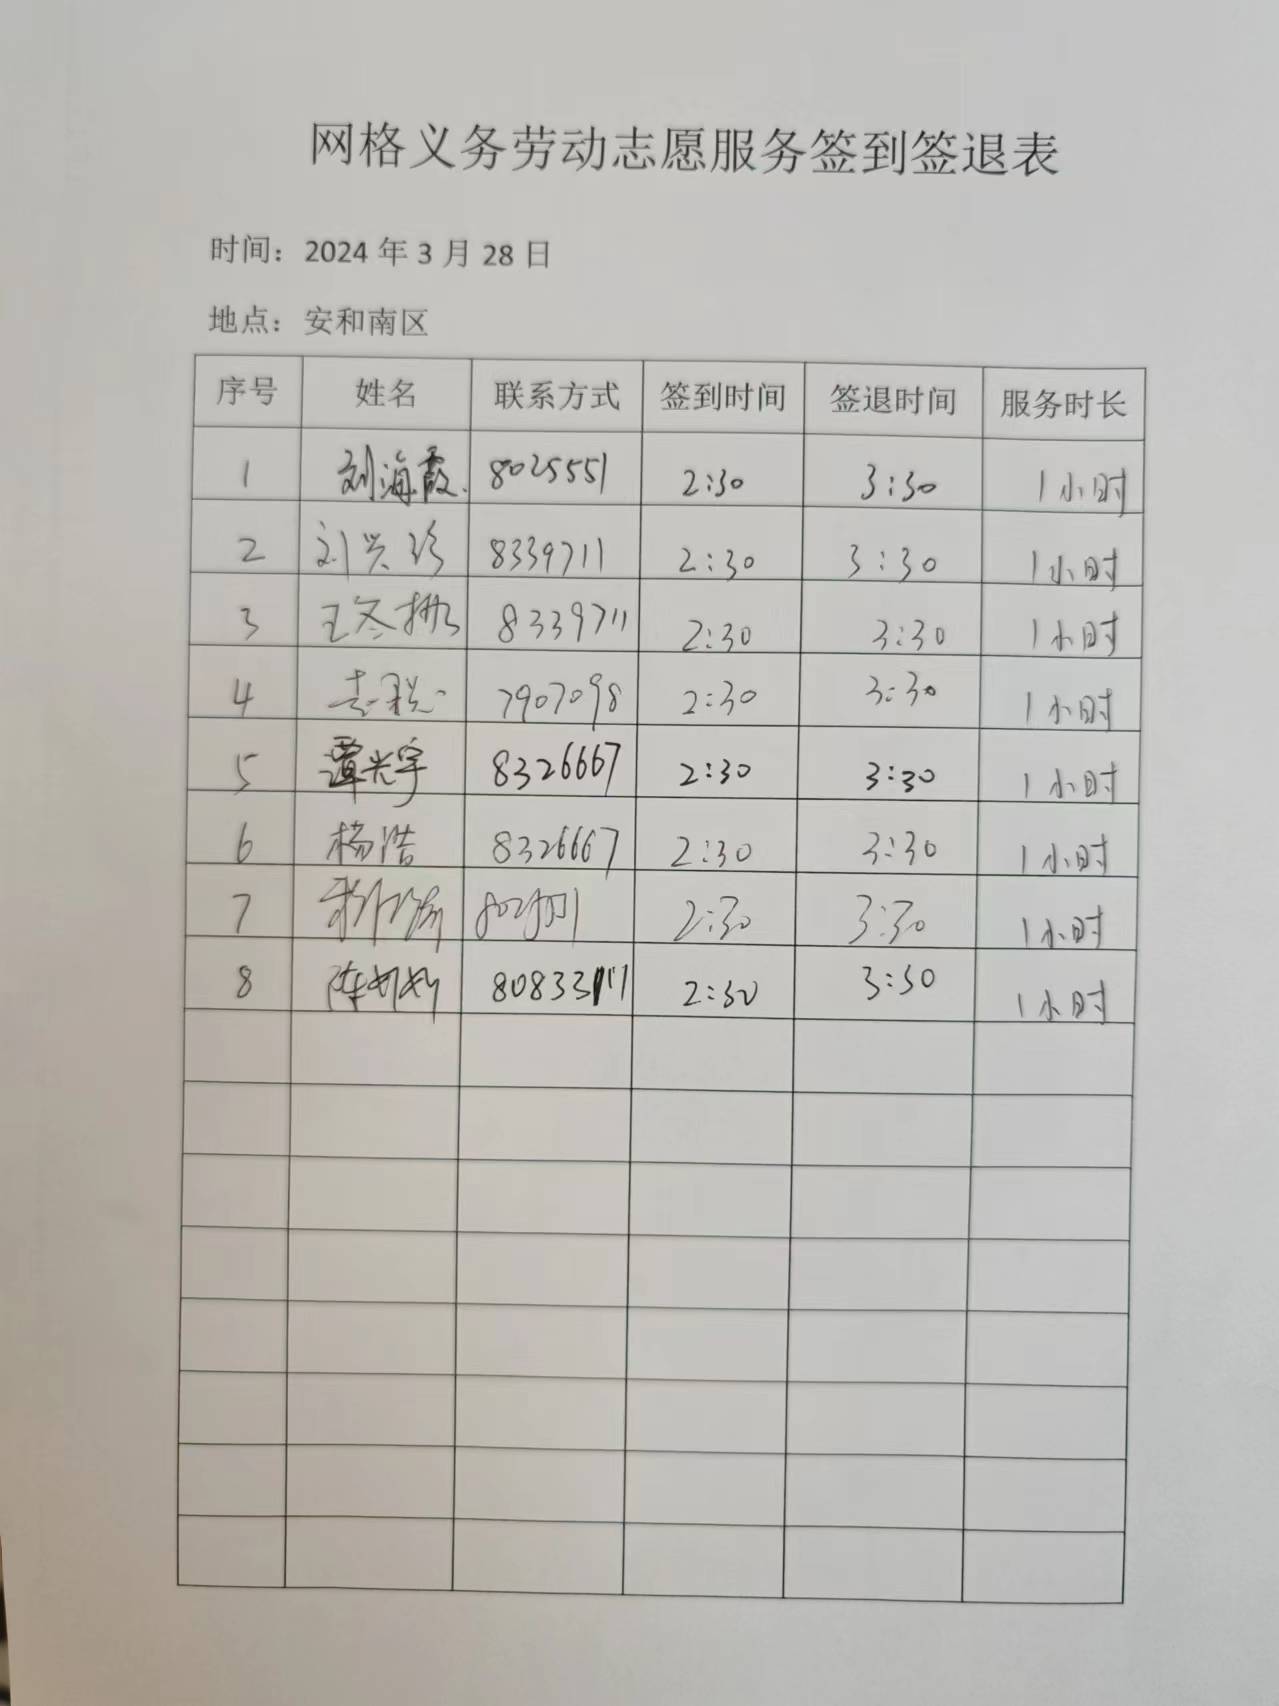 网格义务劳动志愿服务签到签退表
时间：2024 年 3 月 28 日
地点：安和南区
序号 姓名 联系方式 签到时间 签退时间 服务时长
1 刘海霞 8025551 2:30 3:30 1小时
2 刘兴珍 8339711 2:30 3:30 1小时
3 王冬 8339711 2:30 3:30 1小时
4 7907098 2:30 3:30 1小时
5 谭光宇 8326667 2:30 3:30 1小时
6 杨浩 8326667 2:30 3:30 1小时
7 2:30 3:30 1小时
8 陈 2:30 3:30 1小时